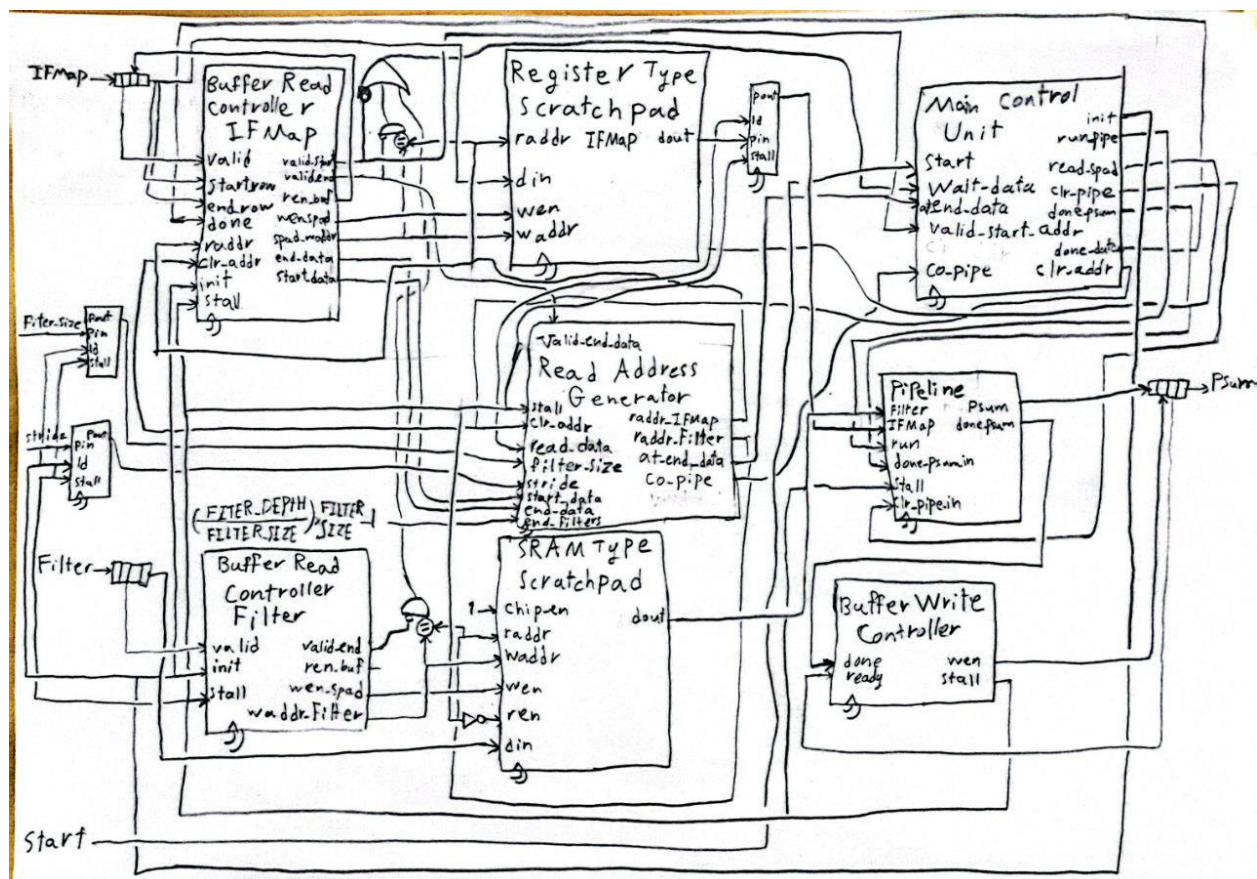 IFMap
Buffer Read
Controller
IFMap
valid
startrow
endrow
done
raddr
clr-addr
init
stall
valid-end
ren-buf
wenspad
end-data
start data
Register Type
Scratchpad
raddr IFMap dout
din
wen
waddr
Pout
ld
pin
stall
Main Control
Unit
start
Wait-data
end-data
valid-start-addr
Clr
Co-pipe
init
run-pipe
read-spad
clr-pipe
done-psum
done-data
clr-addr
Fiter-size
Pout
Pin
ld
stall
stride
Pout
Pin
ld
stall
Valid-end-data
Read Address
Generator
stall
clr-addr
read-data
filter-size
stride
start-data
end-data
end-filters
raddr-IFMap
raddr-Filter
at-end-data
Co-pipe
Pipeline
Filter
IFMap
run
done-psumin
stall
Clr-pipe-in
Psum
done-psum
Psum
(FITER_DEPTH / FILTER_SIZE) * FILTER SIZE - 1
Filter
Buffer Read
Controller
Filter
valid
init
stall
valid-end
ren-buf
wen-spad
waddr-Filter
SRAM Type
Scratchpad
1
chip-en
raddr
waddr
wen
ren
din
dout
Buffer Write
Controller
done
ready
wen
stall
Start